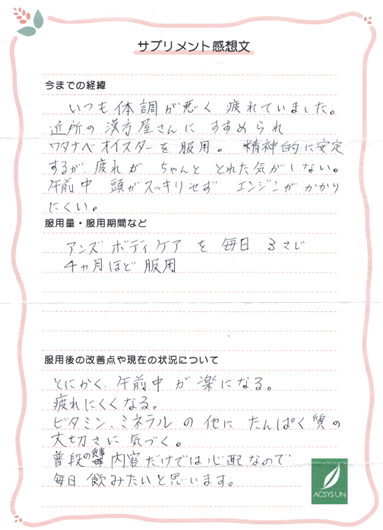 サプリメント感想文
今までの経緯
いつも体調が悪く 疲れていました。
近所の漢方屋さんに すすめられ
ワタナベオイスターを服用。 精神的に安定
するが 疲れが ちゃんと とれた気がしない。
午前中 頭がスッキリせず エンジンがかかり
にくい。
服用量・服用期間など
アンズ ボディケア を 毎日 3さじ
4ヶ月ほど 服用
服用後の改善点や現在の状況について
とにかく、午前中 が 楽になる。
疲れにくくなる。
ビタミン、ミネラル の 他に たんぱく質の
大切さに 気づく。
普段の食事内容だけでは心配なので
毎日 飲みたいと思います。
ACSYSUN